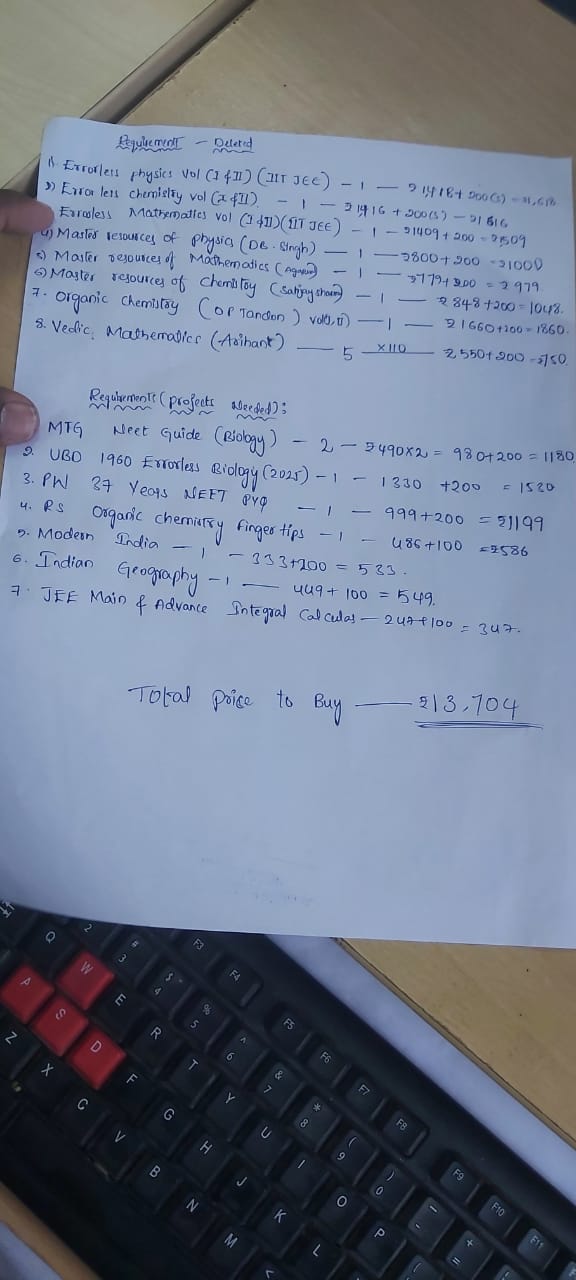 Requirement - Deleted
1) Errorless physics Vol (I & II) (IIT JEE) - 1 - ₹1418 + 200(s) = ₹1,618
2) Error less chemistry vol (I & II) - 1 - ₹1416 + 200(s) - ₹1616
Erroless Mathematics vol (I & II) (IIT JEE) - 1 - ₹1409 + 200 = ₹1509
4) Master resources of physics (DB. Singh) - 1 - ₹800 + 200 = ₹1000
5) Master resources of Mathematics (Agarwal) - 1 - ₹779 + 200 = ₹979
6) Master resources of Chemistry (Sanjay sharma) - 1 - ₹848 + 200 = 1048.
7. Organic Chemistry (OP Tandon) vol(I, II) - 1 - ₹1660 + 200 = 1860.
8. Vedic Mathematics (Arihant) - 5 ×110 - ₹550 + 200 = 750.
Requirements (projects Needed):
MTG Neet Guide (Biology) - 2 - ₹490×2 = 980+200 = 1180
2. UBD 1960 Errorless Biology (2025) - 1 - 1330 +200 = 1530
3. PW 37 Years NEET PYQ - 1 - 999+200 = ₹1199
4. RS Organic chemistry finger tips - 1 - 486+100 = ₹586
5. Modern India - 1 - 333+200 = 533.
6. Indian Geography - 1 - 449+100 = 549.
7. JEE Main & Advance Integral Calculas - 247+100 = 347.
Total Price to Buy - ₹13,704
Q
2
#
3
$
4
%
5
^
6
&
7
*
8
(
9
)
0
F3
F4
F5
F6
F7
F8
F9
F10
F11
W
E
R
T
Y
U
I
O
P
A
S
D
F
G
H
J
K
L
Z
X
C
V
B
N
M